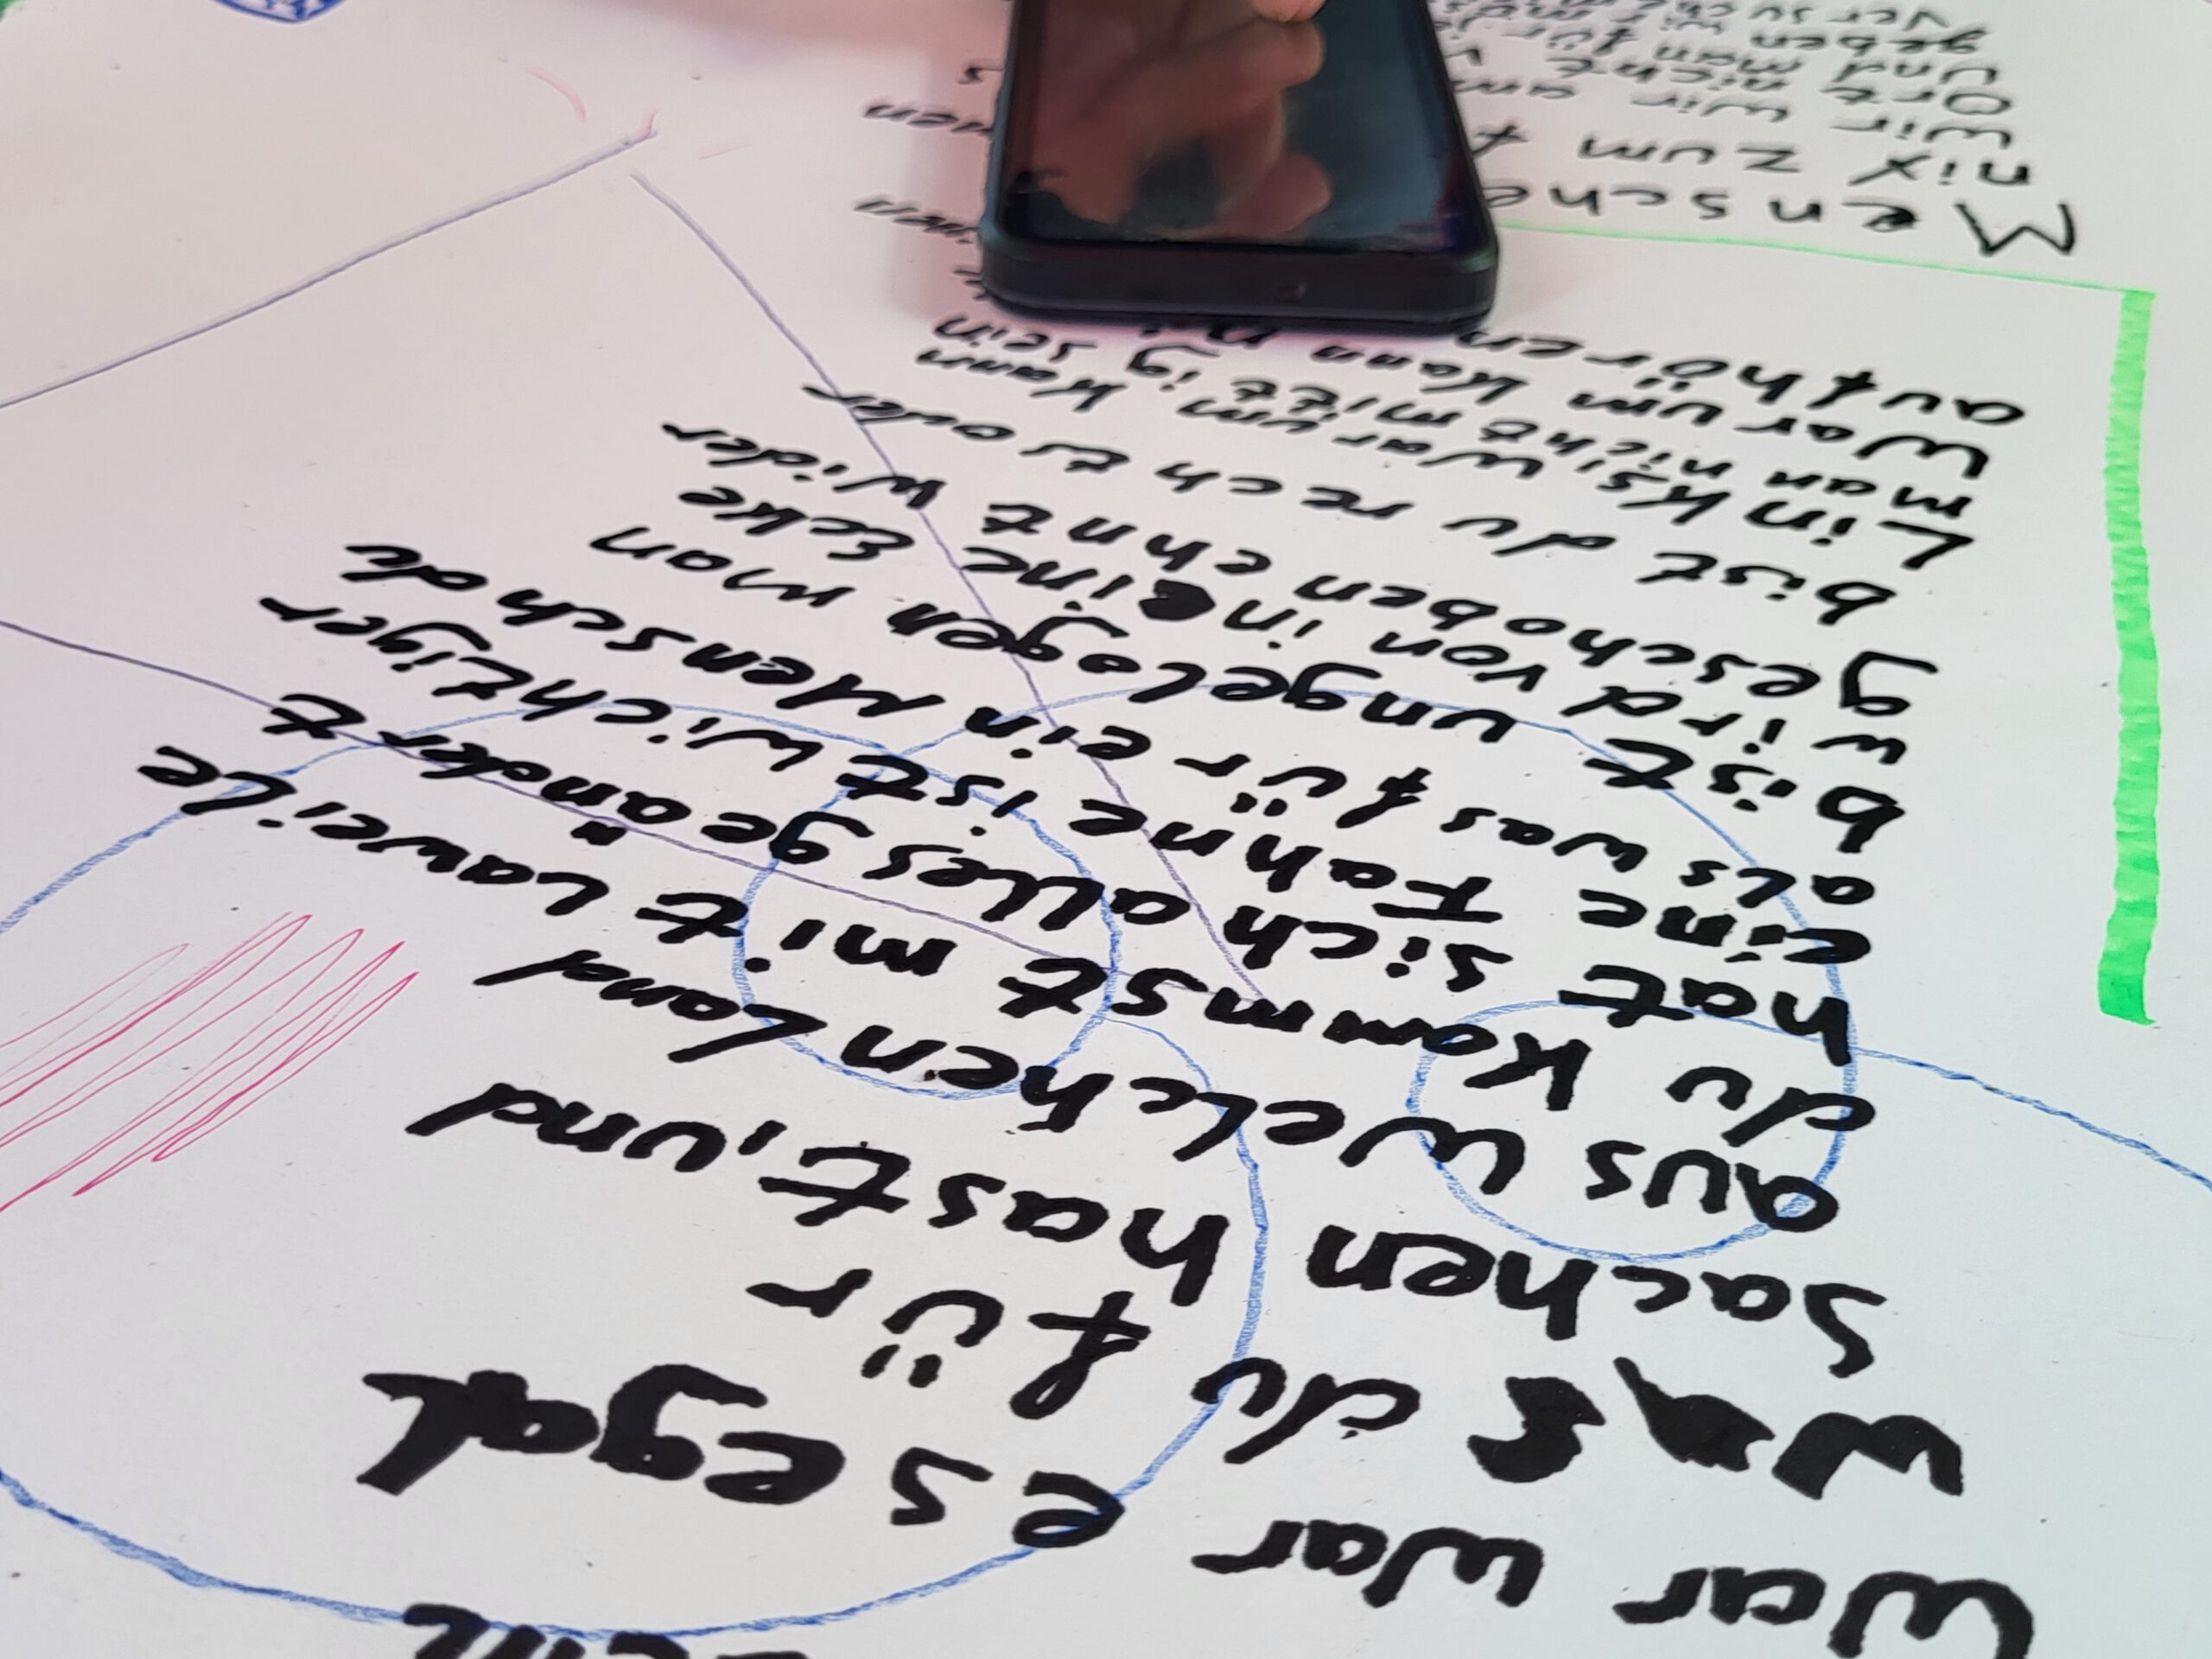 war war es egal
was du für
sachen hast, und
aus welchen Land
du kommst mit Laweile
hat sich alles geändert
eine Fahne ist wichtiger
als was für ein Mensch du
bist ungelogen man
wird von in eine Ecke
geschoben ehnt wider
bist du rechts oder
Links, warum kann
man nicht mittig sein
warum kann
aufhören
nix zum
wir am
Ort nicht
und man für
geben wir